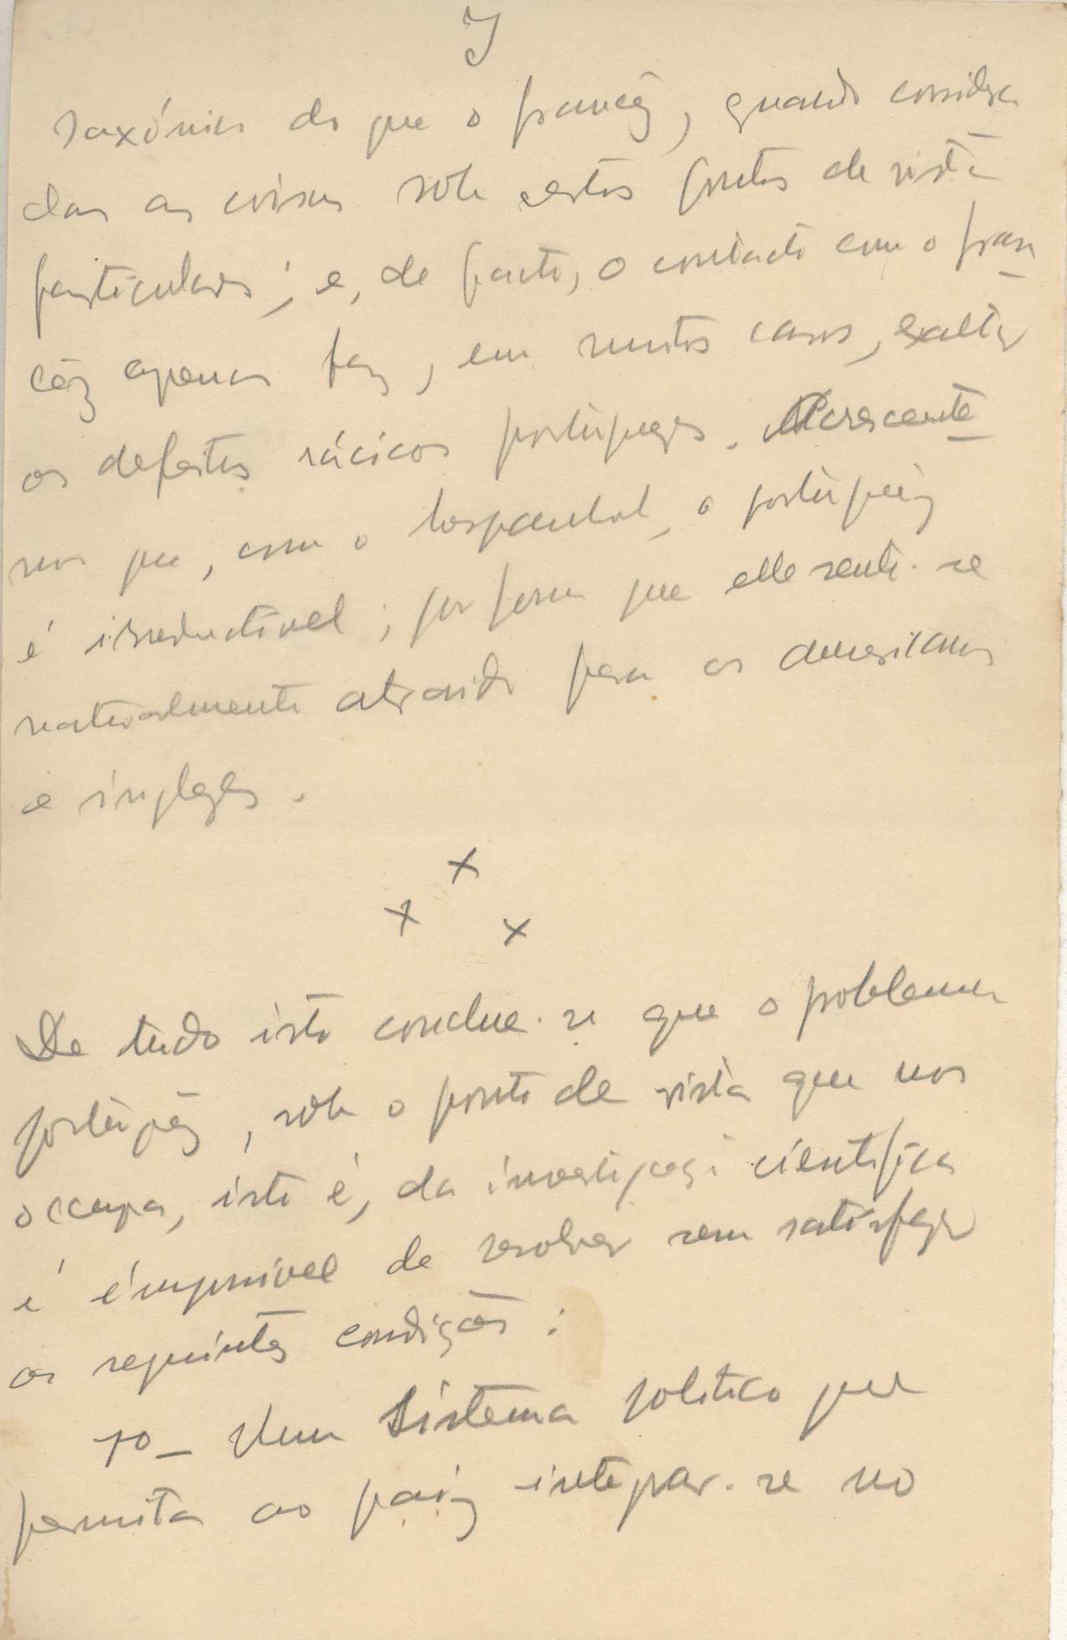 saxónico do que o francêz, quando considera
das as coisas sob certos pontos de vista
particulares; e, de facto, o contacto com o fran
cêz apenas faz, em muitos casos, exaltar
os defeitos rácicos portuguezes. Acrescente
mos que, com o hespanhol, o portuguêz
é irreductivel; por forma que elle sente-se
naturalmente atraido para os americanos
e inglezes.
x
x x
De tudo isto conclue-se que o problema
portuguêz, sob o ponto de vista que nos
occupa, isto é, da investigação cientifica
é impossivel de resolver sem satisfazer
as seguintes condições:
1º_ Um sistema politico que
permita ao paiz integrar-se no